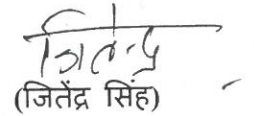 जितेन्द्र
(जितेंद्र सिंह)